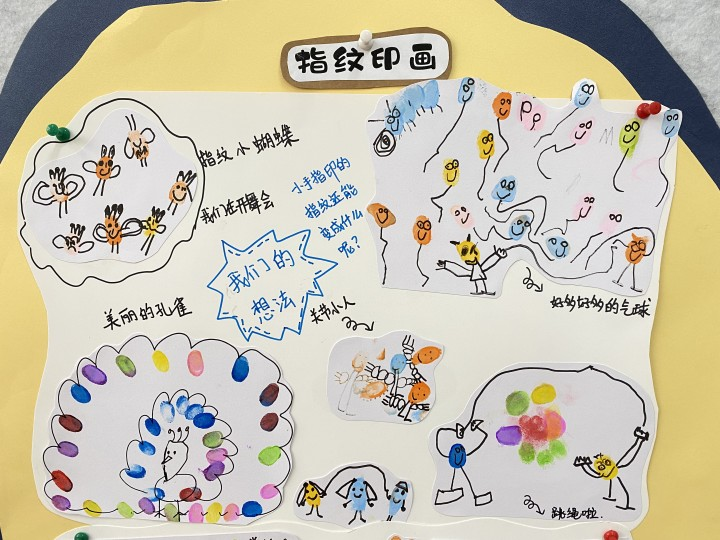 指纹印画
指纹小蝴蝶
我们在开舞会
小手指印的
指纹还能
变成什么
呢？
我们的
想法
好多好多的气球
美丽的孔雀
关节小人
跳绳啦.